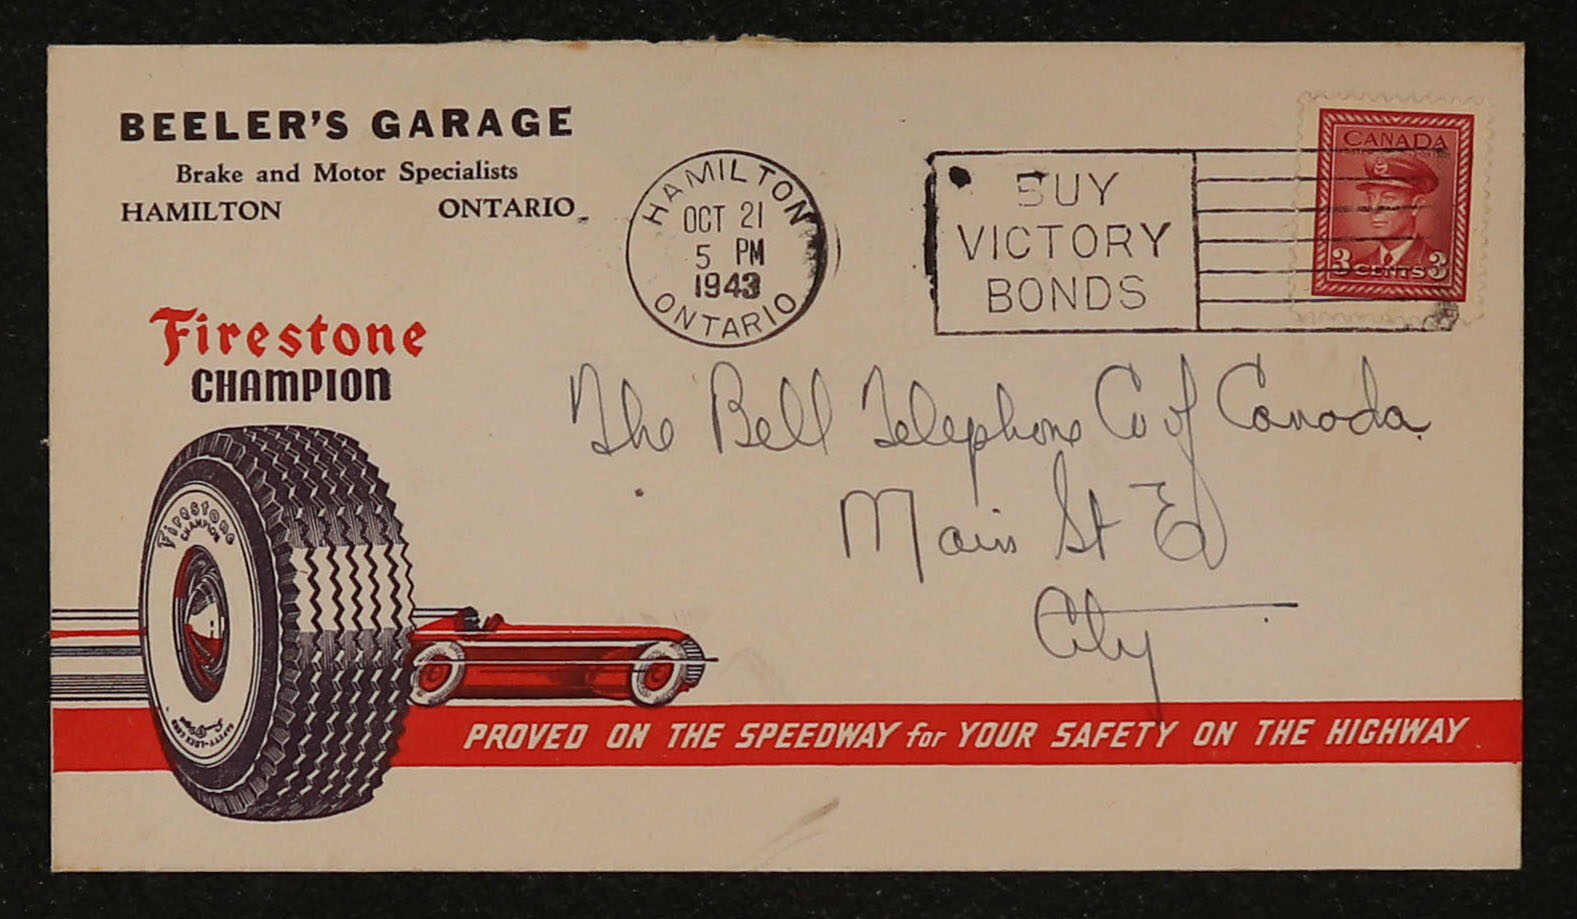 BEELER'S GARAGE
Brake and Motor Specialists
HAMILTON ONTARIO
HAMILTON
OCT 21
5 PM
1943
ONTARIO
BUY
VICTORY
BONDS
CANADA
3 CENTS 3
Firestone
CHAMPION
The Bell Telephone Co of Canada
Main St E
City
Firestone
CHAMPION
PROVED ON THE SPEEDWAY for YOUR SAFETY ON THE HIGHWAY